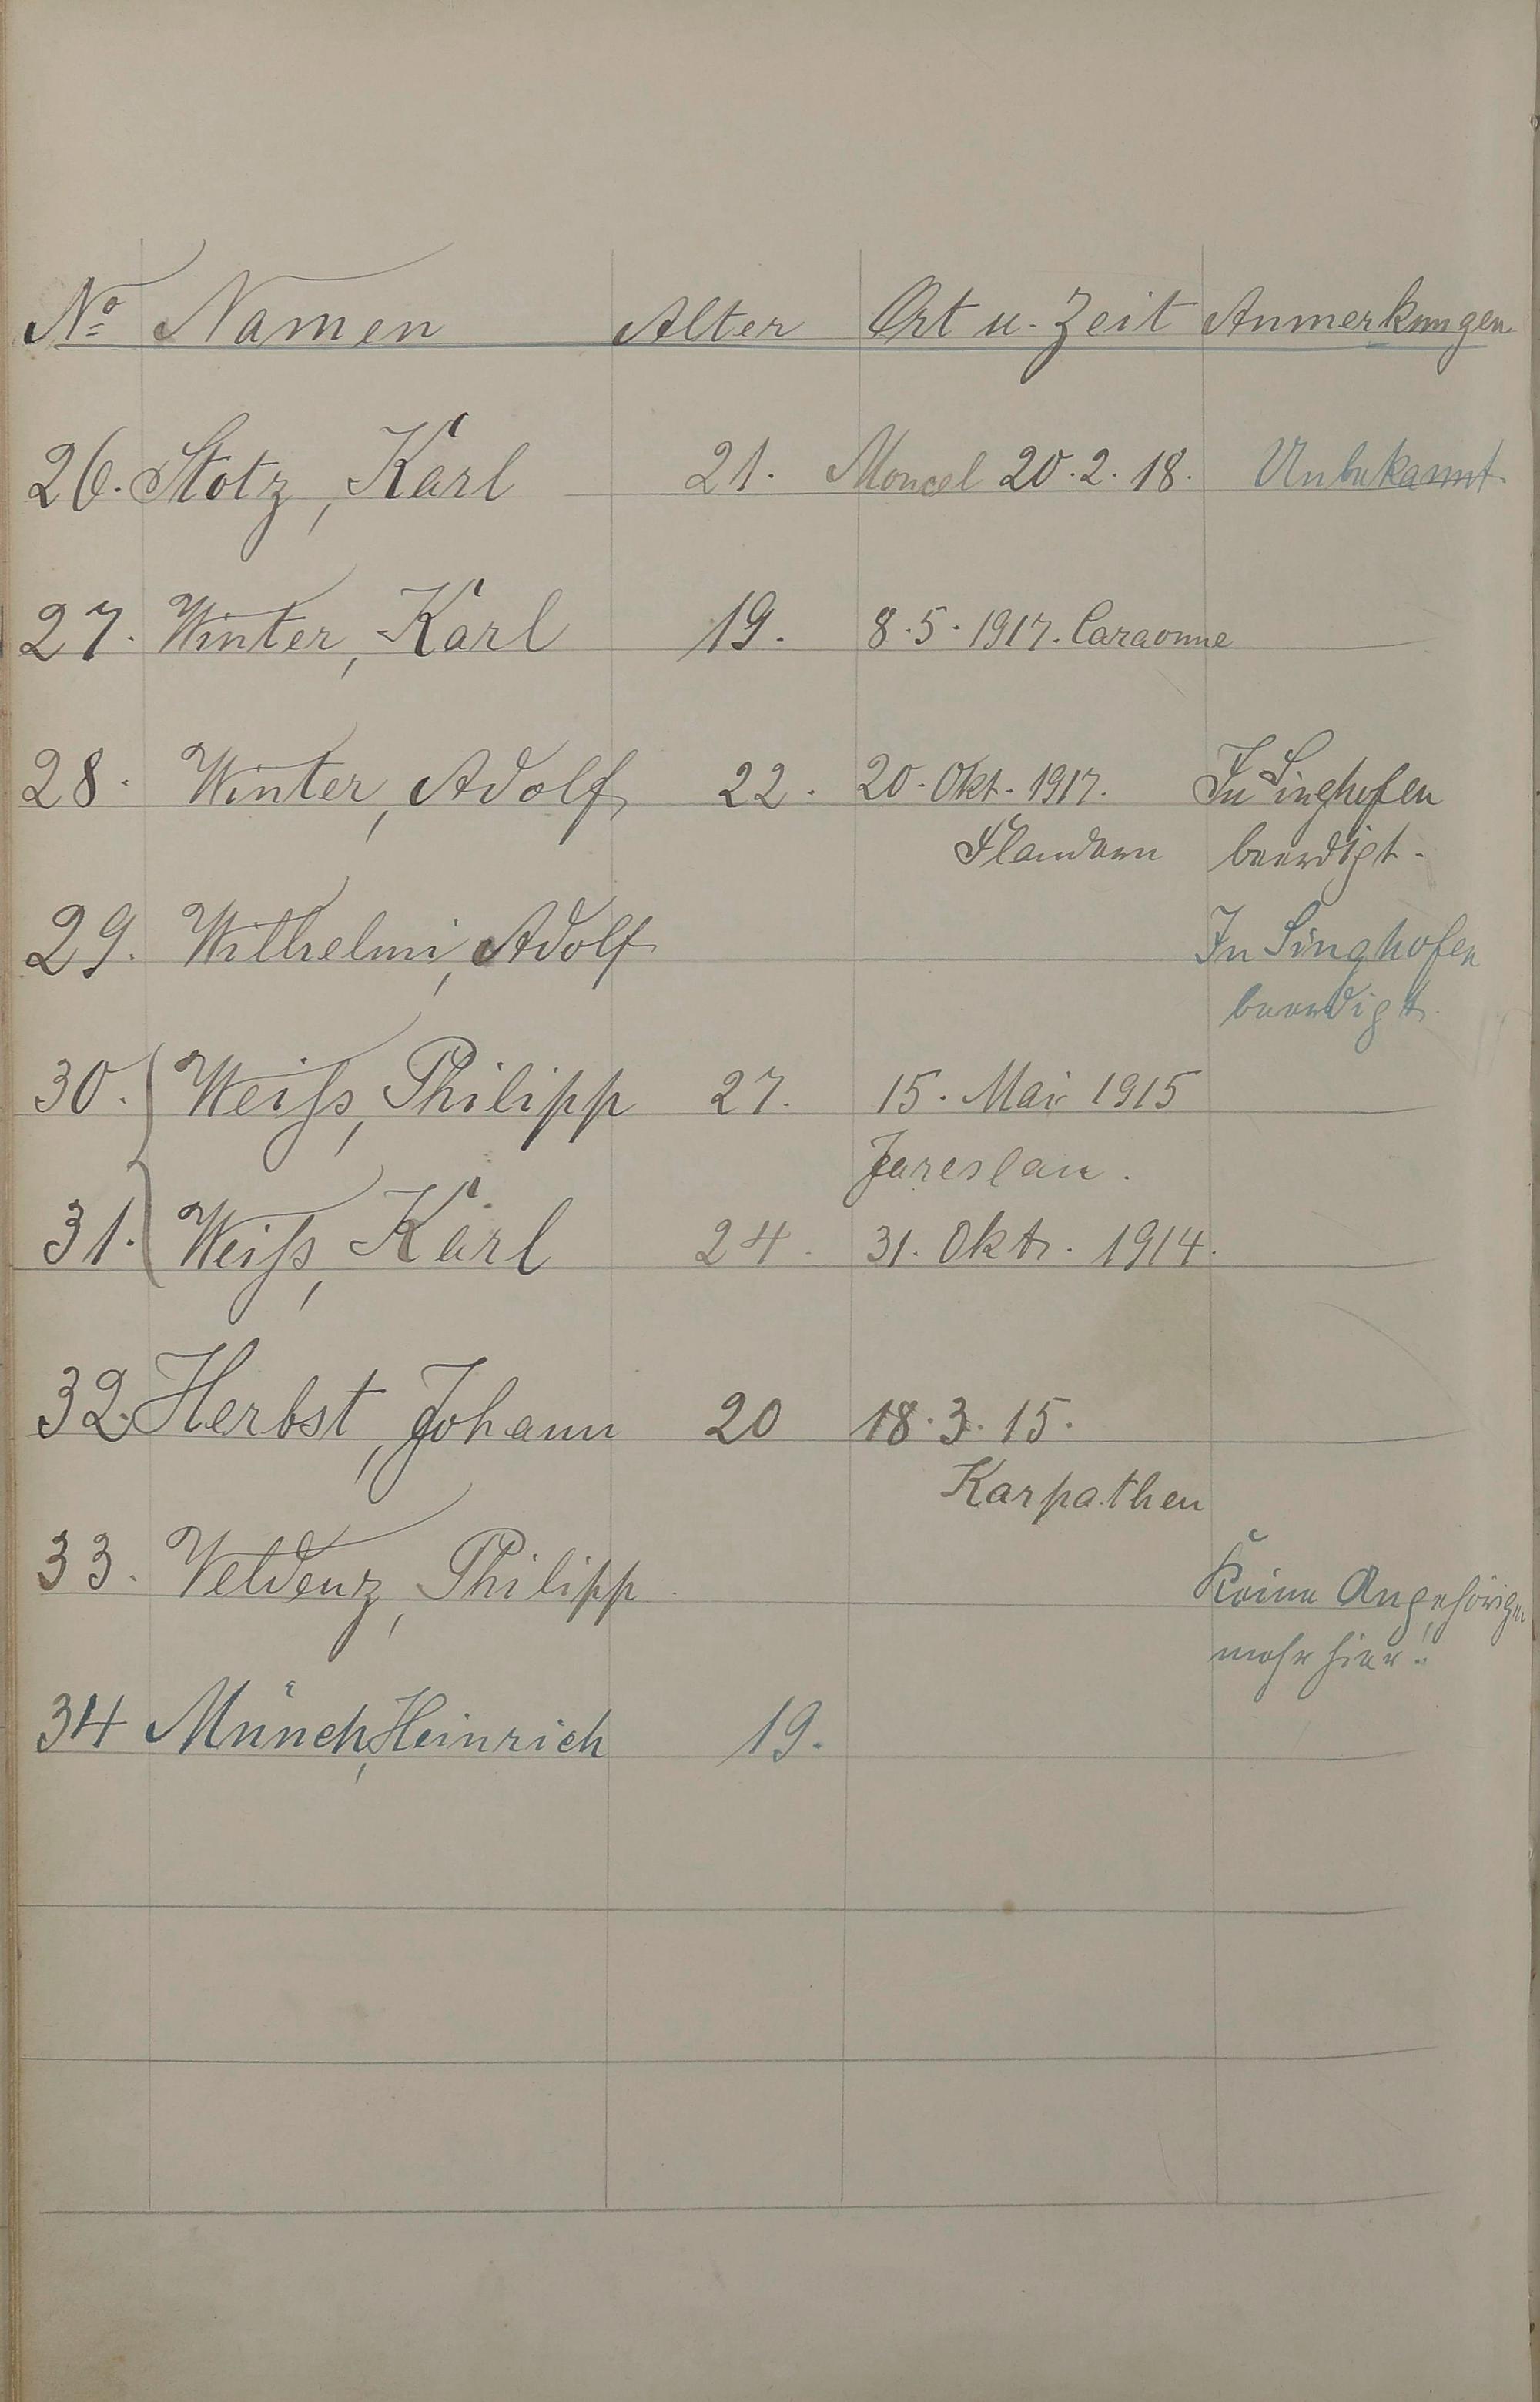 No Namen Alter Ort u. Zeit Anmerkungen
26. Stotz, Karl 21. Moncel 20.2.18. Unbekannt
27. Winter, Karl 19. 8.5.1917. Caraonne
28. Winter, Adolf 22. 20. Okt. 1917. In Singhofen
Flandern beerdigt.
29. Wilhelmi, Adolf In Singhofen
beerdigt.
30. Weiss, Philipp 27. 15. Mai 1915
Jareslau.
31. Weiss, Karl 24. 31. Okt. 1914.
32. Herbst, Johann 20 18.3.15.
Karpathen
33. Veldenz, Philipp Keine Angehörigen
mehr hier!
34 Münch, Heinrich 19.